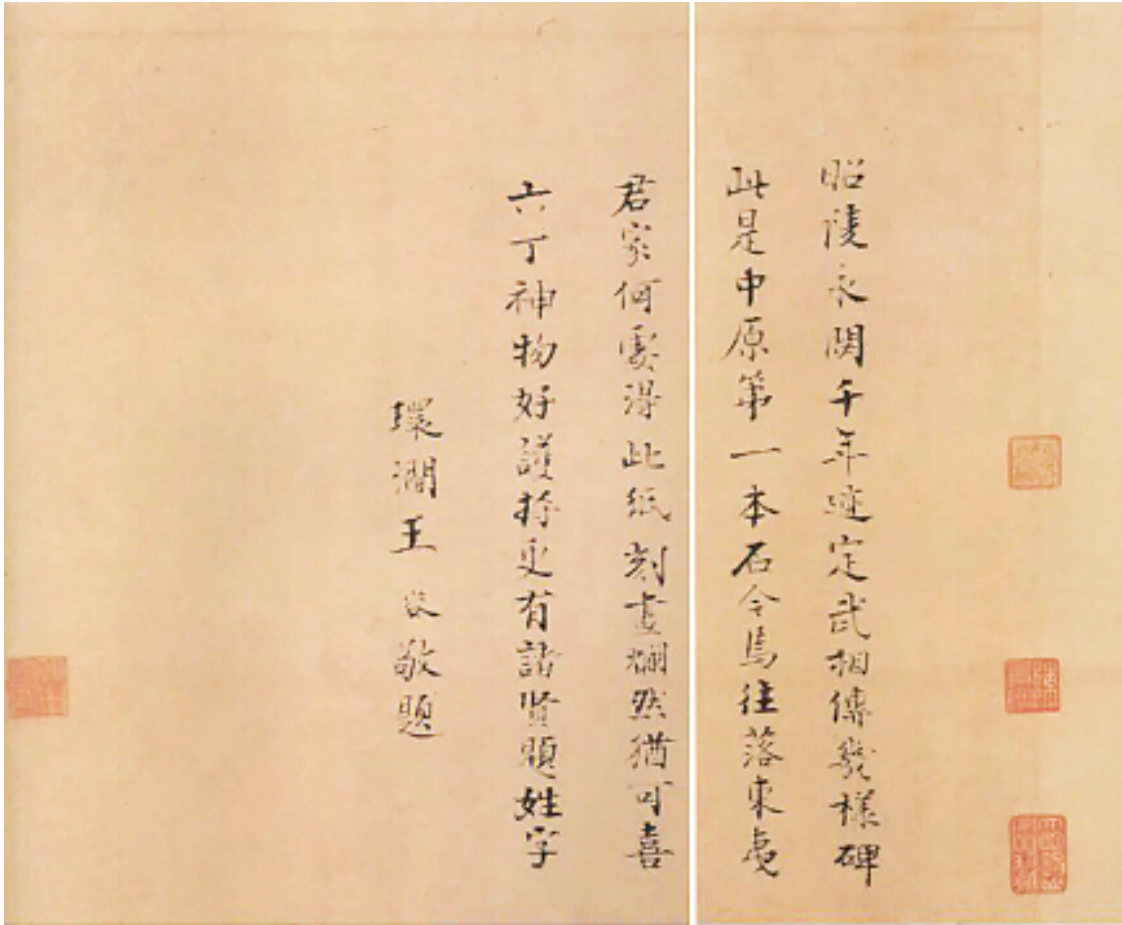 昭陵永閟千年迹定武相傳幾樣碑
此是中原第一本石今焉往落東夷
君家何處得此紙刻畫爛然猶可喜
六丁神物好護持更有諸賢題姓字
環澗王 敬題